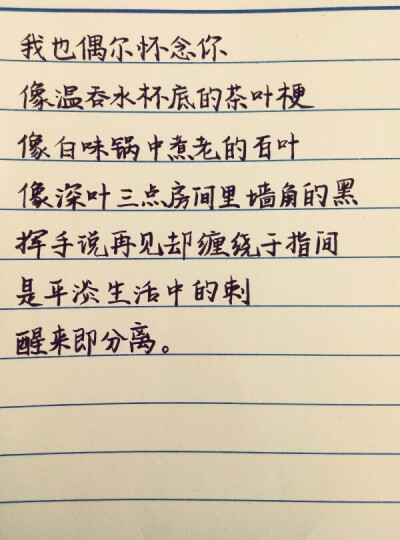 我也偶尔怀念你
像温吞水杯底的茶叶梗
像白味锅中煮老的百叶
像深叶三点房间里墙角的黑
挥手说再见却缠绕于指间
是平淡生活中的刺
醒来即分离。